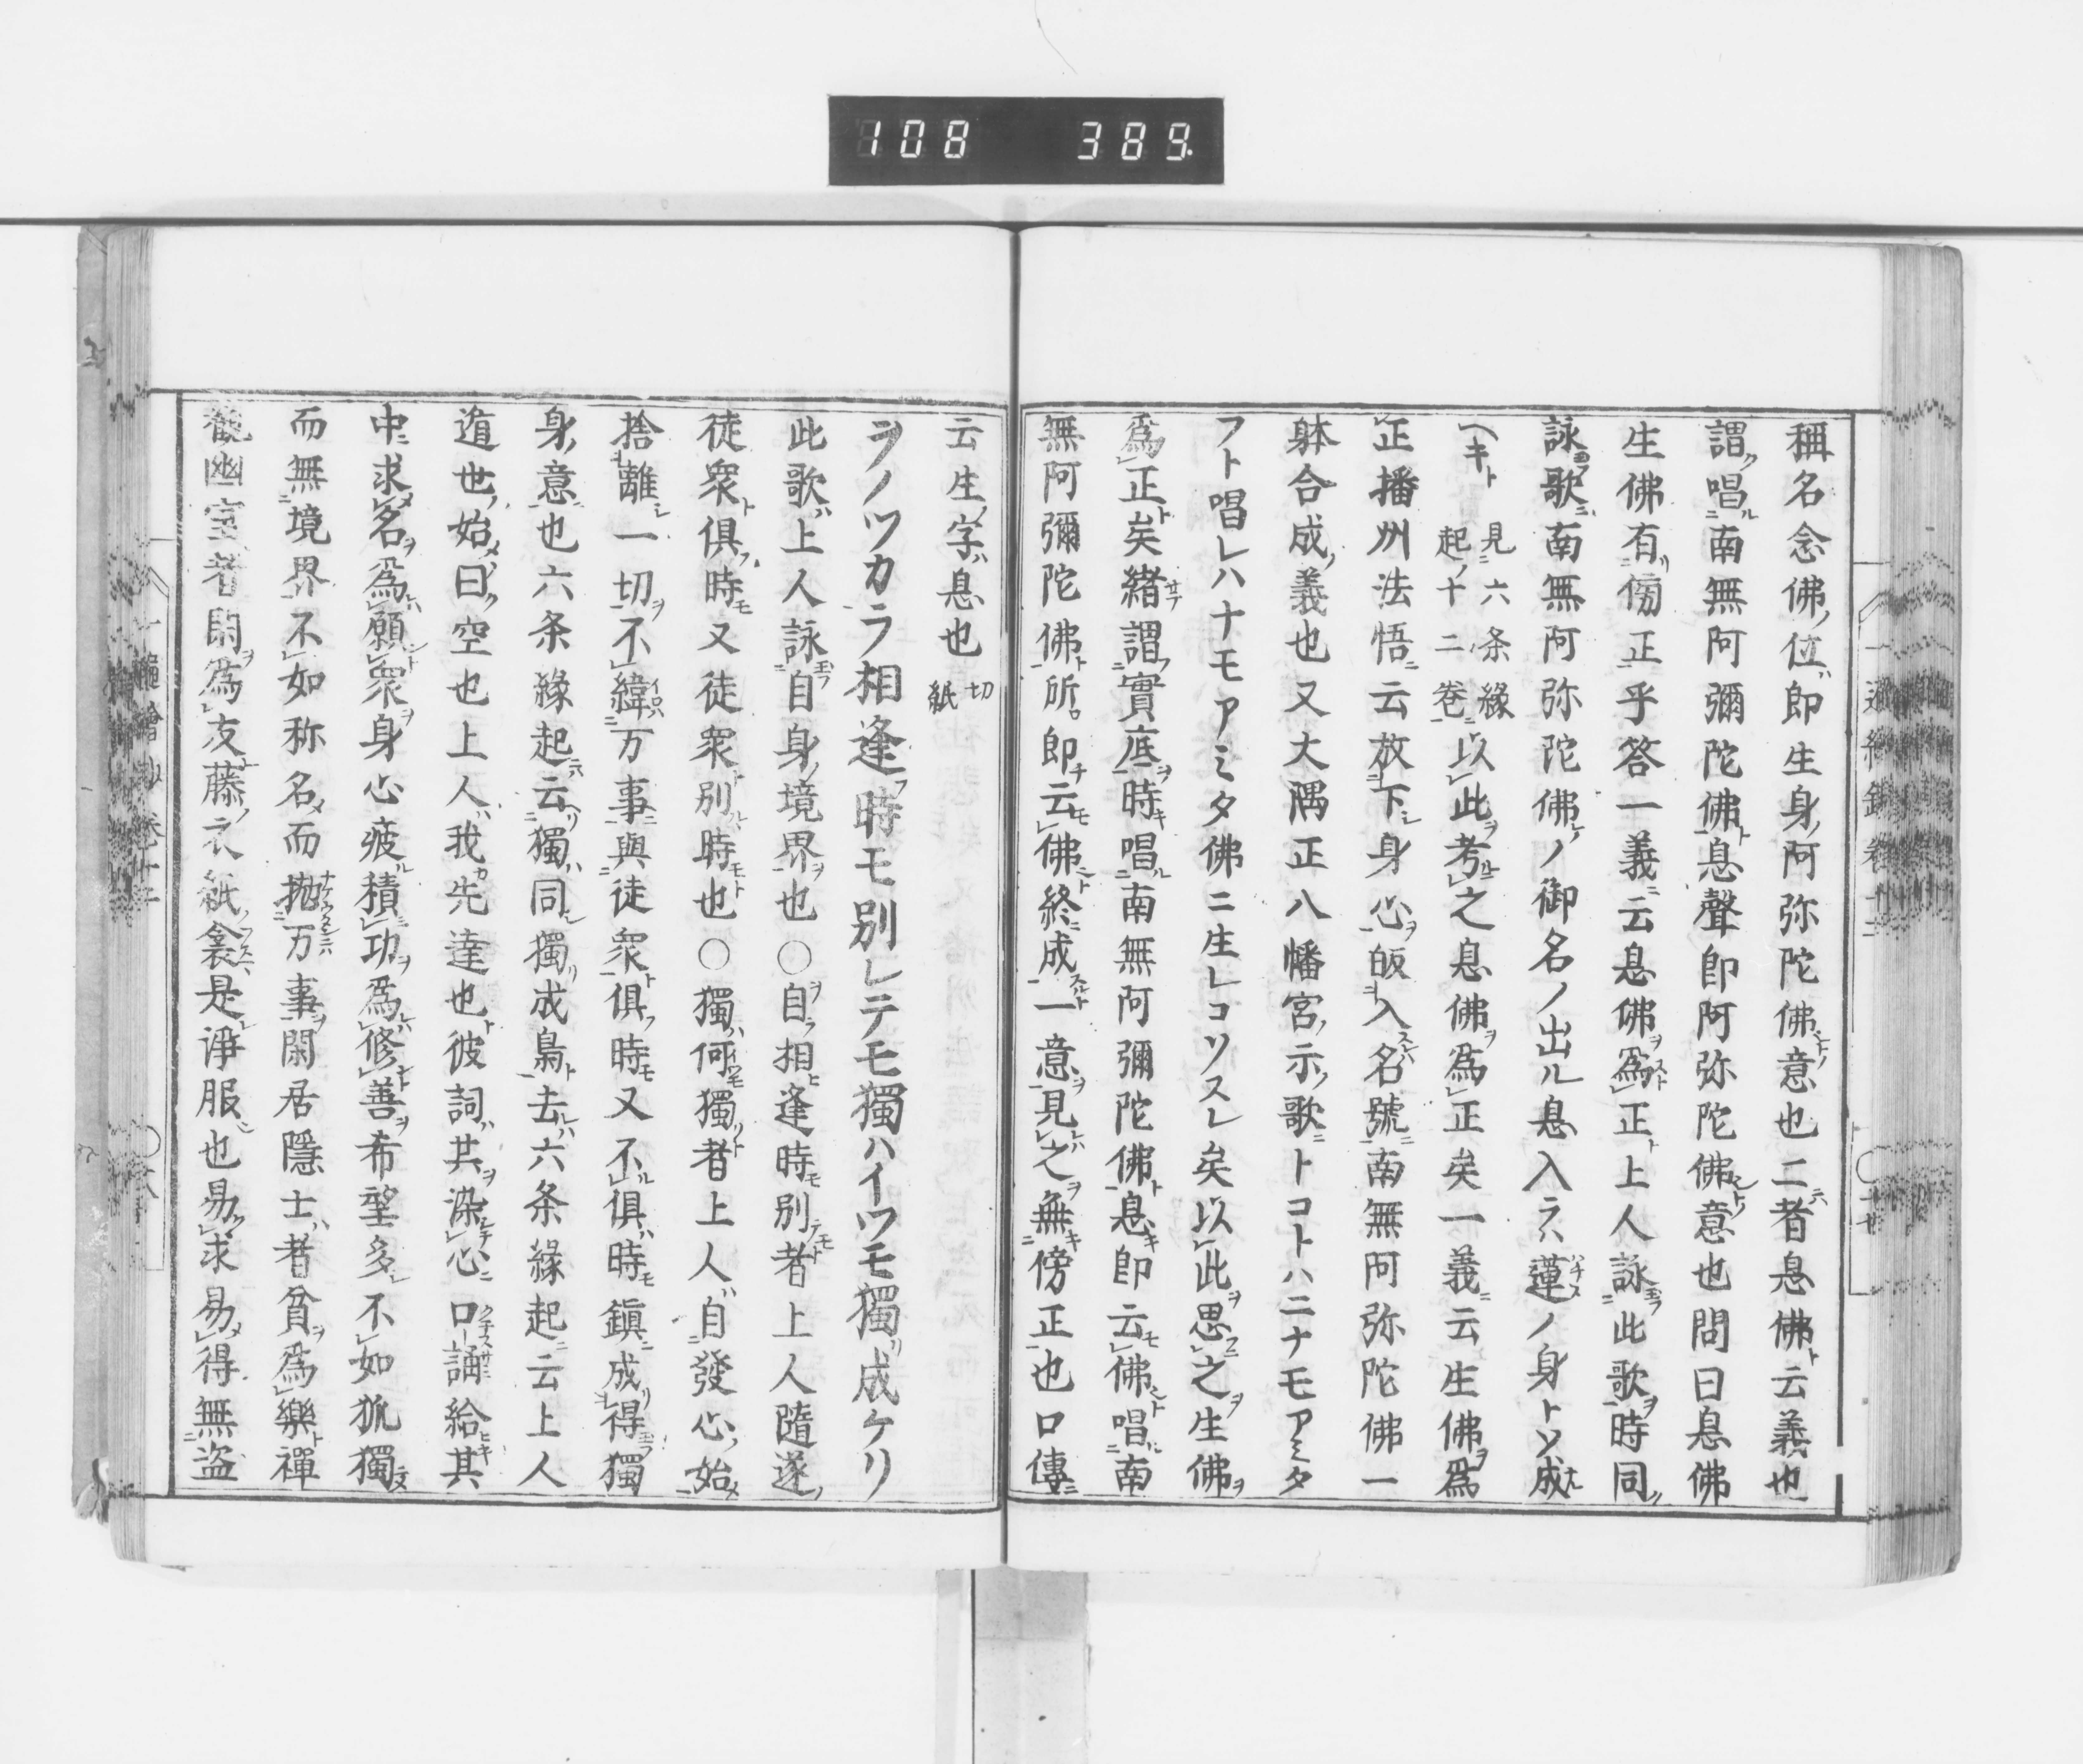 108 389.
稱名念佛ノ位ハ即生身ノ阿弥陀佛意也二ニ者息佛ト云義也
謂ク唱ル南無阿彌陀佛ト息聲即阿弥陀佛意也問曰息佛
生佛有リ傍正乎答一義ニ云息佛ヲ爲正ト上人詠此歌ヲ時同ク
詠歌ニ南無阿弥陀佛ノ御名ノ出ル息入ラハ蓮ノ身トソ成ル
ヘキト見六条縁起ノ十二巻以此ヲ考之息佛ヲ爲正矣一義ニ云生佛ヲ爲
正播州法悟ニ云放下シ身心ヲ皈入名號ニ南無阿弥陀佛一
躰合成ノ義也又大隅正八幡宮ノ示ノ歌ニトコトハニナモアミタ
フト唱レハナモアミタ佛ニ生レコソスレ矣以此ヲ思フニ之ヲ生佛ヲ
爲正ト矣緒謂ク實底ヲ時キ唱ル南無阿彌陀佛ト息キ即云モ佛ト唱ル南
無阿彌陀佛ト所即チ云モ佛ト終ニ成スルト一意ヲ見レハ之ヲ無キ傍正也口傳ニ
云生ノ字ハ息也切紙
ヲノツカラ相逢フ時モ別レテモ獨ハイツモ獨リ成ケリ
此歌ハ上人詠自身ノ境界ヲ也〇自ヲ相ヒ逢時モ別テモト者上人隨遂ノ
徒衆ト俱フ時モ又徒衆ト別ル時モト也〇獨ハ何モ獨リト者上人ハ自發心ノ始メ
捨離シ一切ヲ不緯万事ニ與徒衆ト俱フ時モ又不ル俱ハ時モ鎮ニ成リ得玉フ獨
身ノ意ニ也六条縁起ニ云ヘリ獨ハ同シ獨リ成梟ト去レハ六条縁起ニ云上人
道世ノ始メ曰ク空也上人ハ我カ先達也ト彼詞ハ其ヲ染テハ心ニ口誦給ヒキ其
中ニ求メ名ヲ爲レハ願ト衆ヲ身心疲ル積ニ功ヲ爲レハ修ト善ヲ希望多シ不如孤獨ニ
而無境界ニ不如称名メ而抛ニハ万事ヲ閑居隱士ハ者貧ヲ爲樂ト禪
觀幽室者閑ヲ爲友ト藤ノ衣紙衾是淨服也易ク求メ易得無盜